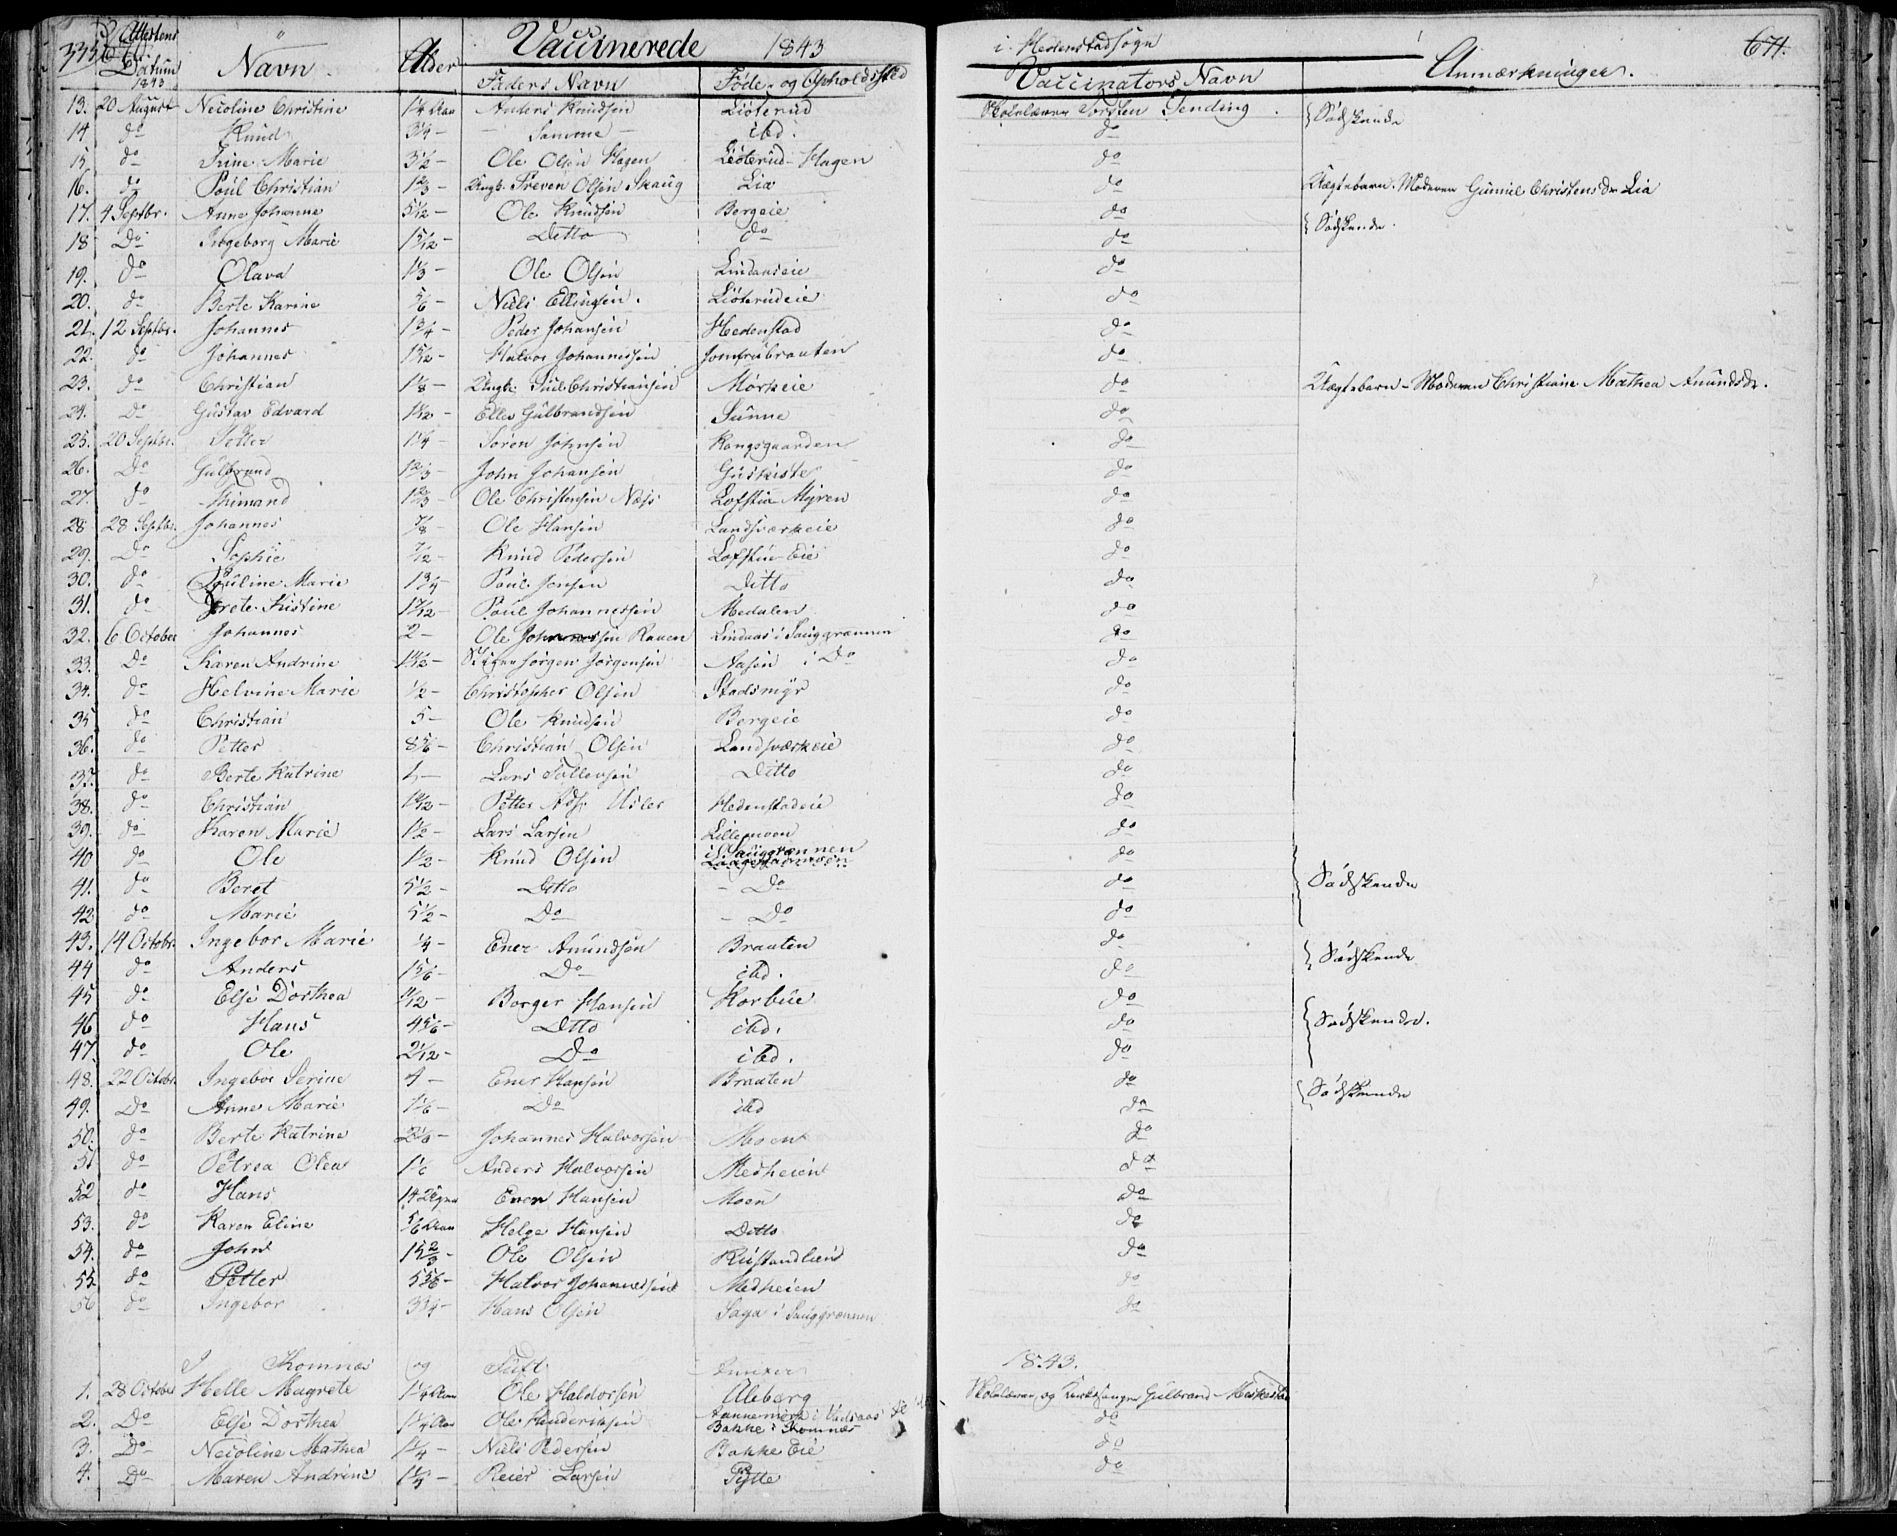 335 670 Attestens Datum 1843 Navn. Alder Vaccinerede 1843 i Hedenstad sogn 671.
Faders Navn Føde- og Opholdssted Vaccinators Navn Anmærkninger.
13. 20 August Nicoline Christine 1¼ Aar Anders Knudsen Liøterud Skolelærer Torsten Tending. Sødskende
14 do Knud 3¼ – Samme – ibd. do
15 do Trine Marie 3½ – Ole Olsen Hagen Liøterud-Hagen do
16. do Poul Christian 1⅔ – Ungk. Preven Olsen Skaug Lia do Uægtebarn. Moderen Gunnil Christensdr Lia
17. 4 Septbr. Anne Johanne 5½ – Ole Knudsen Bergeie do Sødskende.
18 Do Ingeborg Marie 1 5/12 – Ditto do do
19. do Olava 1⅓ – Ole Olsen Lindaaseie do
20. do Berte Karine 5/6 – Niels Ellingsen. Liøterudeie do
21. 12 Septbr. Johannes 1¾ – Peder Johansen Hedenstad do
22. do Johannes 1 5/12 – Halvor Johannessen Jomfrubraaten do
23. do Christian 1⅛ – Ungk. Juel Christiansen Mørkeie do Uægtebarn – Moderen Christiane Mathea Amundsdr.
24. Do Gustav Edvard – Ellev Gulbrandsen Sunne do
25. 20 Septbr. Petter 1¼ – Søren Johnsen Kongsgaarden do
26. Do Gulbrand 1⅔ – John Johansen do
27. do 1⅔ – Ole Christensen Næss Lofstu Myren do
28 28 Septbr. Johannes 7/8 – Ole Hansen Landsværkeie do
29. Do Sophie 7/12 – Knud Pedersen Lofstu-Eie do
30. do Pauline Marie 1¾ – Poul Jensen Ditto do
31. do Grete Kistine 1 7/12 – Poul Johannessen Medalen do
32. 6 October Johannes 2 – Ole Johannessen Raaen Lindaas i Sauggrænnen do
33. Do Karen Andrine – Jørgen Jørgensen Aasen i Do do
34. do Helvine Marie ½ – Christopher Olsen Stadsmyr do
35 do Christian 5 – Ole Knudsen Bergeie do
36. do Petter 8 5/6 – Christian Olsen Landsværkeie do
37. do Berte Katrine 1 – Lars Tollevsen Ditto do
38. do Christian – Petter Hedenstadeie do
39. do Karen Marie 1½ – Lars Larsen Lillemoen do
40 do Ole 1½ – Knud Olsen i Sauggrænnen do
41. do Beret 5½ – Ditto – Do do Sødskende
42 do Marie 5½ – Do – Do do
43. 14 Octobr. Ingebor Marie ¼ – Ener Amundsen Braaten do Sødskende
44 do Anders 1 5/6 – Do ibd. do
45 do Else Dorthea 11/12 – Borger Hansen Korbue do
46 do Hans 4 5/6 – Ditto ibd. do Sødskende.
47. do Ole 2 1/12 – Do ibd. do
48. 22 Octobr. Ingebor Serine 4 – Ener Hansen Braaten do Sødskende
49. Do Anne Marie 1⅙ – Do ibd do
50. do Berte Katrine 2⅙ – Johannes Halvorsen Moen do
51 do Petrea Olea 1⅙ Anders Halvorsen Medheien do
52 do Hans 14 Uger Even Hansen Moen do
53. do Karen Eline 5/6 Aar Helge Hansen Ditto do
54. do John 15⅔ – Ole Olsen Rustandlien do
55. do Petter 5 5/6 – Halvor Johannessen Medheien do
56 do Ingebor 3¾ – Hans Olsen Saga i Sauggrænnen do
I Komnæs og Tuft Annexer 1843.
1. 28 October Helle Magrete 1¼ Aar Ole Haldorsen Aleberg Skolelærer og Kirkesanger Gulbrand
2. Do Else Dorthea 1¼ Aar Ole Henderiksen do
Bakke i Komnæs
3. Do Nicoline Mathea 1¼ – Niels Pedersen Bakke Eie do
4. Do Maren Andrine 1¼ – Reier Larsen Pytte do